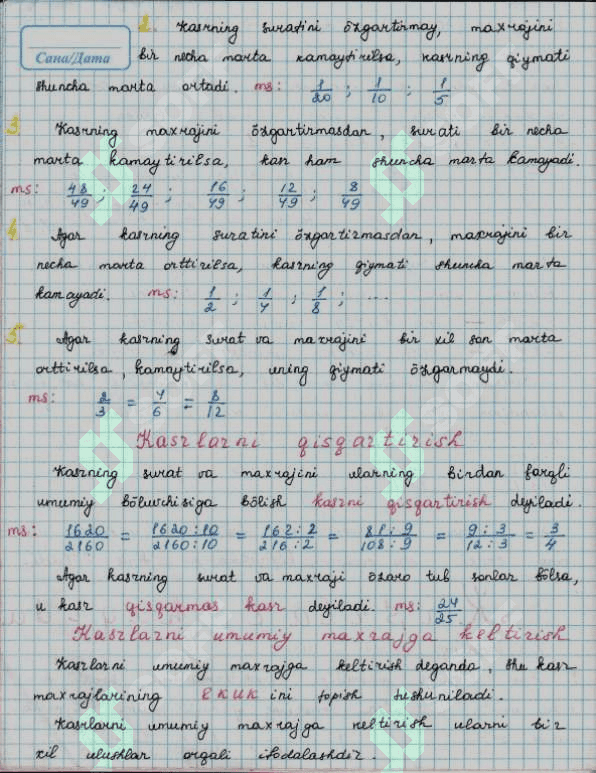 Сана/Дата
2. Kasrning suratini özgartirmay, maxrajini
bir necha marta kamaytirilsa, kasrning qiymati
shuncha marta ortadi. ms: 1/20 ; 1/10 ; 1/5
3. Kasrning maxrajini özgartirmasdan, surati bir necha
marta kamaytirilsa, kasr ham shuncha marta kamayadi.
ms: 48/49 ; 24/49 ; 16/49 ; 12/49 ; 8/49
4. Agar kasrning suratini özgartirmasdan, maxrajini bir
necha marta orttirilsa, kasrning qiymati shuncha marta
kamayadi. ms: 1/2 ; 1/4 ; 1/8 ; ...
5. Agar kasrning surat va maxrajini bir xil son marta
orttirilsa, kamaytirilsa, uning qiymati özgarmaydi.
ms: 2/3 = 4/6 = 8/12
Kasrlarni qisqartirish
Kasrning surat va maxrajini ularning birdan farqli
umumiy bòluvchisiga bòlish kasrni qisqartirish deyiladi.
ms: 1620/2160 = 1620:10/2160:10 = 162:2/216:2 = 81:9/108:9 = 9:3/12:3 = 3/4
Agar kasrning surat va maxraji òzaro tub sonlar bòlsa,
u kasr qisqarmas kasr deyiladi. ms: 24/25
Kasrlarni umumiy maxrajga keltirish
Kasrlarni umumiy maxrajga keltirish deganda, shu kasr
maxrajlarining EKUK ini topish tushuniladi.
Kasrlarni umumiy maxrajga keltirish ularni bir
xil ulushlar orqali ifodalashdir.